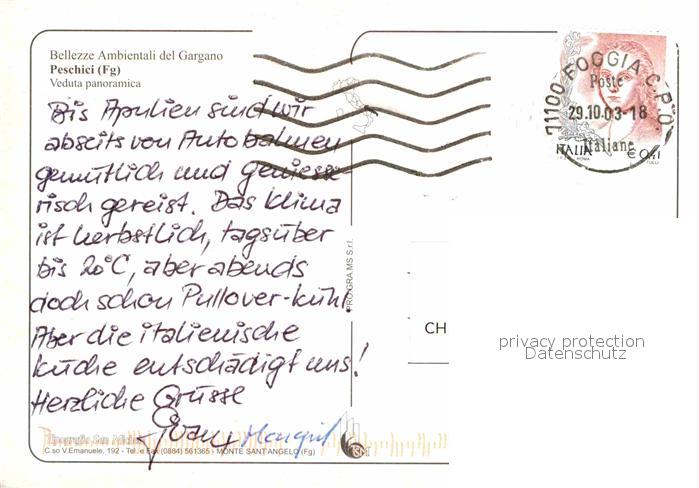 Bellezze Ambientali del Gargano
Peschici (Fg)
Veduta panoramica
Bis Apulien sind wir
abseits von Autobahnen
gemütlich und geniesse-
risch gereist. Das Klima
ist herbstlich, tagsüber
bis 20°C, aber abends
doch schon Pullover-kühl.
Aber die italienische
Küche entschädigt uns!
Herzliche Grüsse
C.so V.Emanuele, 192 - Tel. e Fax (0884) 561365 - MONTE SANT'ANGELO (Fg)
PRO.GRA.MS S.r.l.
71100 FOGGIA C.P.O.
Poste
29.10.03-18
Italiane
ITALIA € 0,41
ROMA
CH
privacy protection
Datenschutz